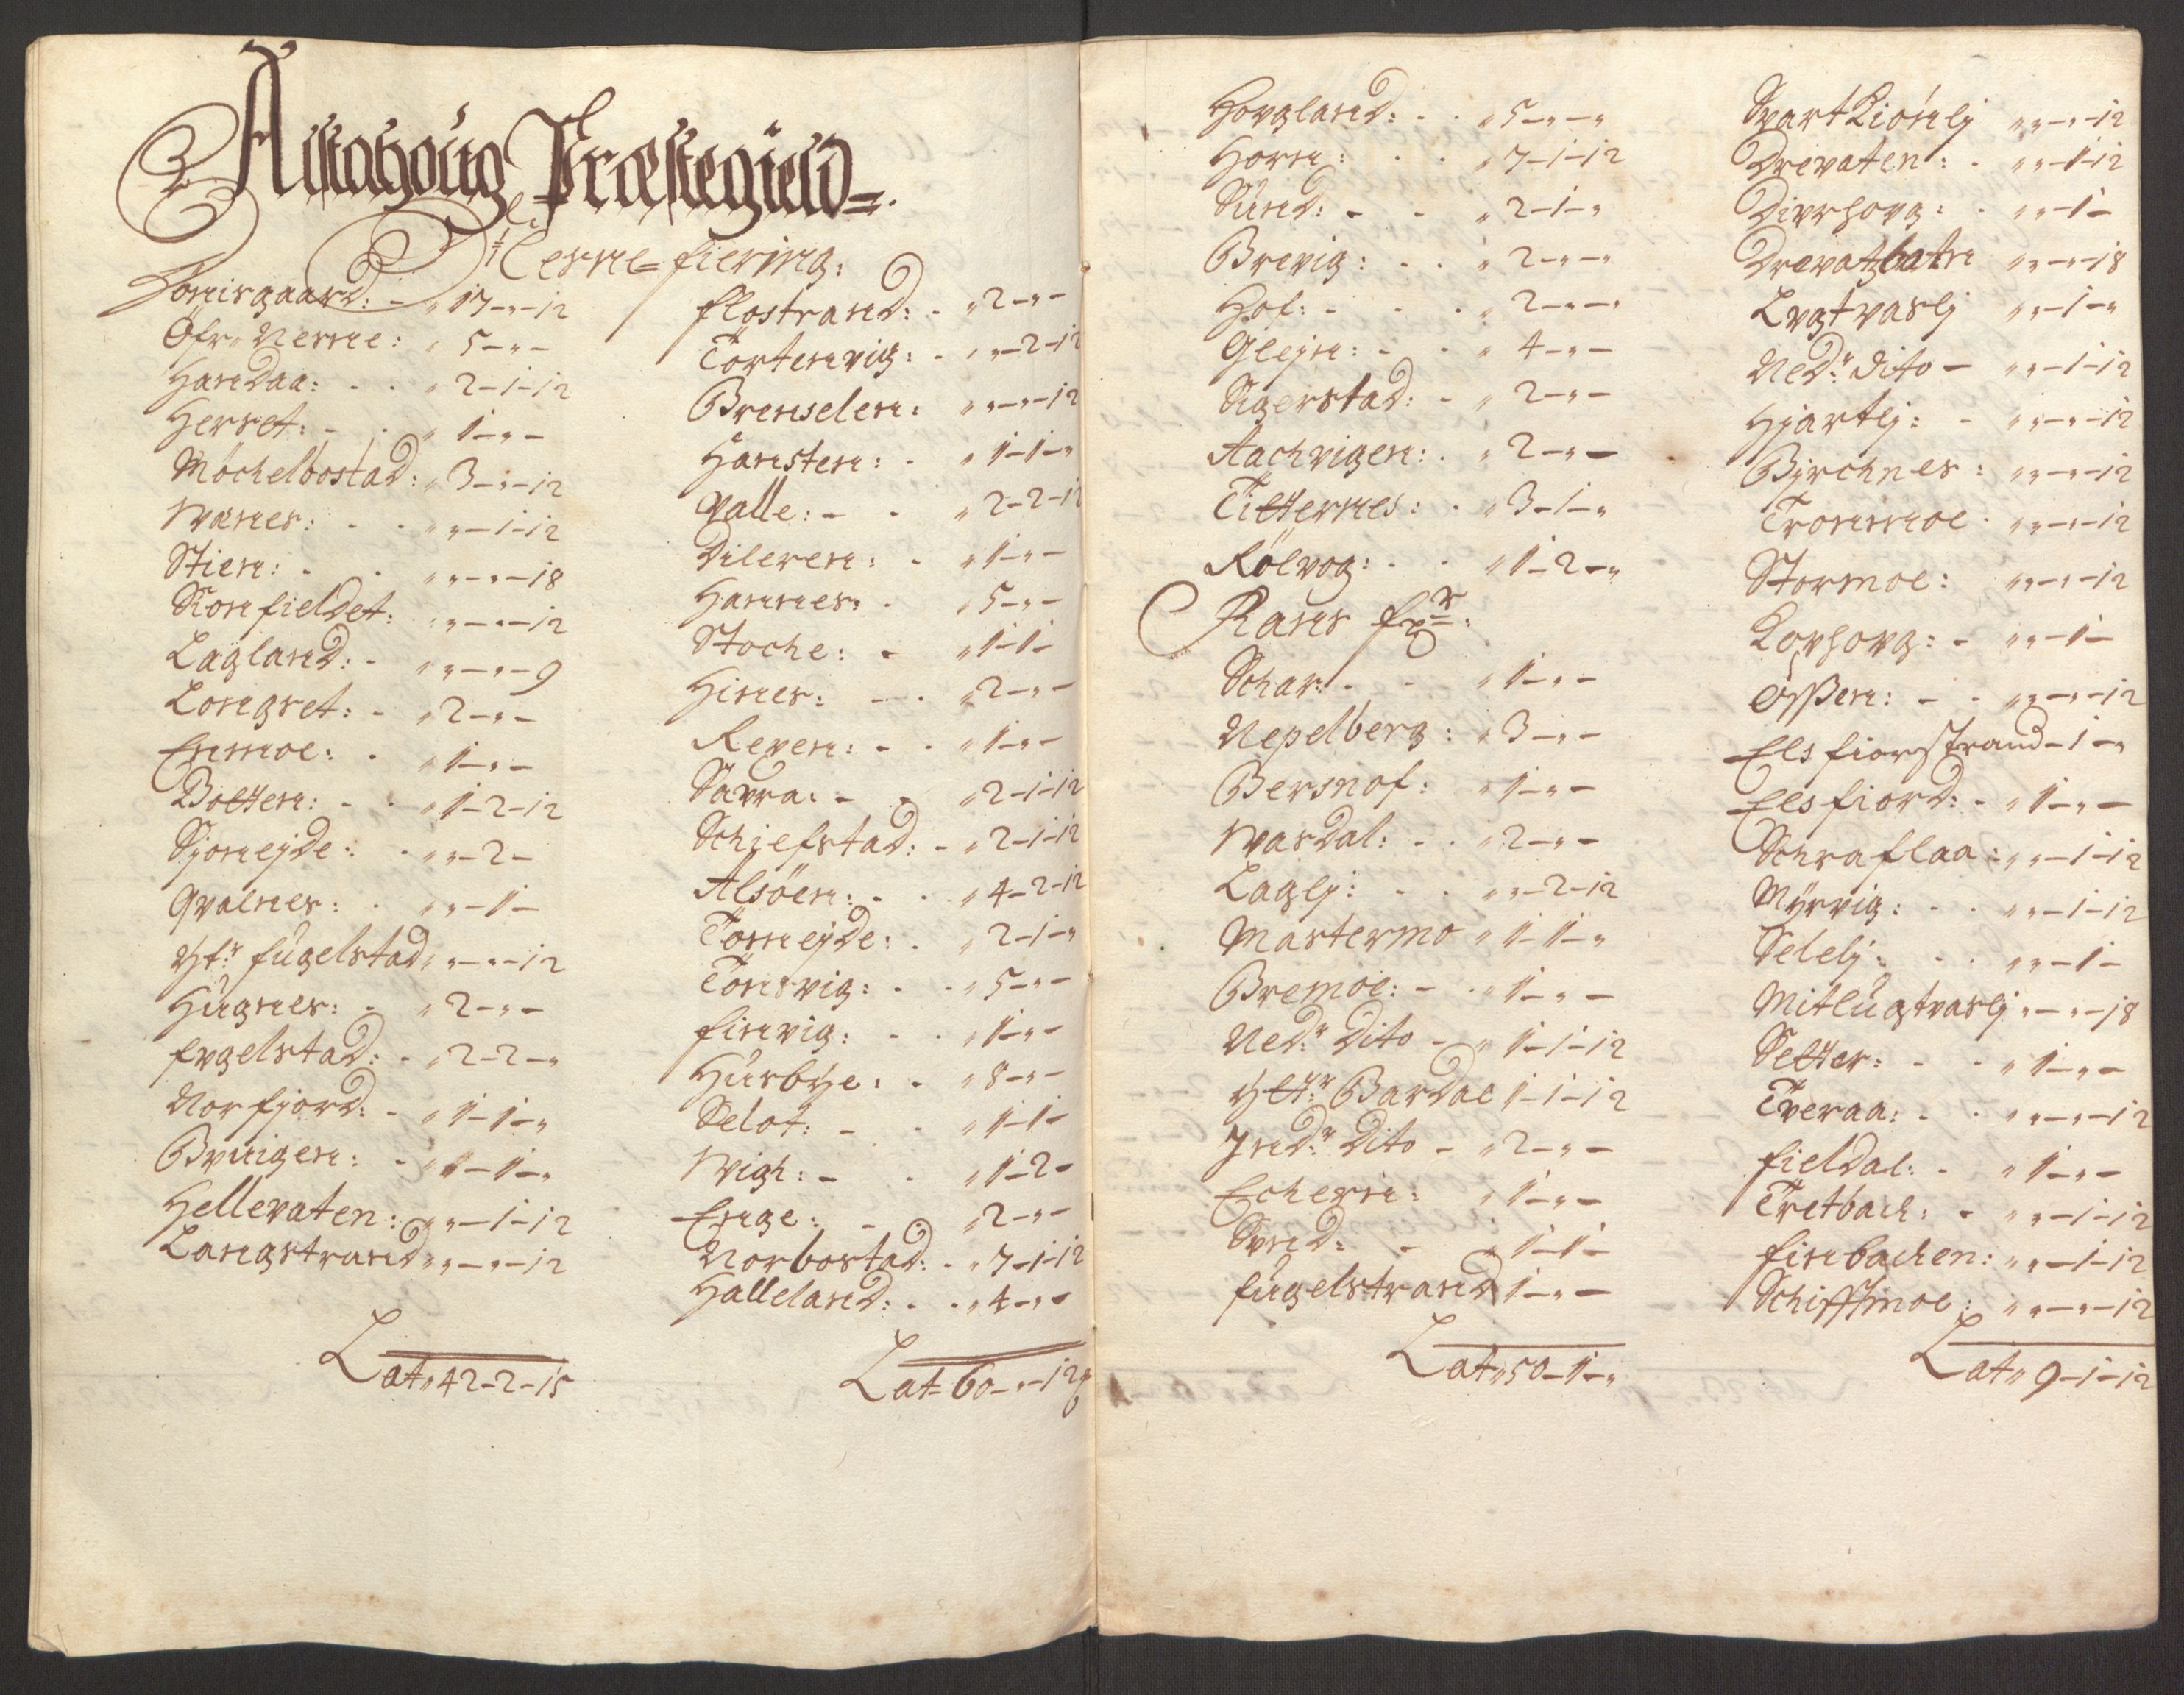 Alstahoug Præstegield
Nerne fiering:
Sonisgaard: - „ 17-„-12
Öfr„ Nerne: „ 5-„-
Handaa: . . „ 2-1-12
Herset: - . „ 1-„-
Möchelbostad: „ 3-„-12
Wænes: . . „„-1-12
Stien: . . „„-„-18
Konfieldet: „„-„-12
Lagland: . „„-„-9
Longset: - „ 2-„-
Enmoe: . „ 1-„-
Bolten: . . „ 1-2-12
Sjoneyde: . „„-2-
Qvalnes: . „„-1-
Ytr fugelstad „„-„-12
Hugnes: - „ 2-„-
fvgelstad: - „ 2-2-„
Norfjord: - „ 1-1-„
Bvnigen: - „ 1-1-„
Hellevaten: „„-1-12
Langstrand „„-„-12
Lat„ 42-2-15
flostrand: - „ 2-„-
Tortenvig: - „„-2-12
Brenselen: „„-„-12
Hansten: . „ 1-1-„
Valle: - . „ 2-2-12
Dileren: . „ 1-„-
Hannes: . „ 5-„-
Stoche: - „ 1-1-
Hines: - . „ 2-„-
Reven: - . „ 1-„-
Savra: - - „ 2-1-12
Schiefstad: - „ 2-1-12
Alsöen: - . „ 4-2-12
Tönneyde: . „ 2-1-„
Tönsvig: - . „ 5-„-
finvig: . . „ 1-„-
Husbye: . „ 8-„-
Selot: - . „ 1-1-
Wigh: - . „ 1-2-
Enge: - . „ 2-„-
Norbostad: . „ 7-1-12
Halleland: . . „ 4-„-
Lat= 60-„-12
Hovgland: - . „ 5-„-„
Horn: . . „ 7-1-12
Sund: - - „ 2-1-„
Brevig: . . „ 2-„-„
Hof: - . . „ 2-„-„
Glejn: - . „ 4-„-
Sigerstad: - „ 2-„-
Aachvigen: . „ 2-„-
Titternes: . „ 3-1-„
Rölvog: . . „ 1-2-„
Rans fr:
Schar: . - „ 1-„-
Nepelberg: „ 3-„-
Bersnof: „ 1-„-
Wasdal: . . „ 2-„-
Laglj: . . „„-2-12
Mastermo „ 1-1-„
Bremoe: - . „ 1-„-
Nedr Dito - „ 1-1-12
Yttr Bardal 1-1-12
Indr Dito - „ 2-„-
Echern: „ 1-„-
Svnd: - „ 1-1-
fugelstrand 1-„-
Lat„ 50-1-„
SvartKiönlj „„-„-12
Drevaten: . „„-1-12
Divrhovg: . „„-1-
Drevatzbatn „„-„-18
Lvgtvaslj „„-1-„
Nedr dito - „„-1-12
Hjartlj: - „„-„-12
Byrchnes: „„-„-12
Tronmoe . „„-„-12
Stormoe: „„-„-12
Kovhovg: - „„-1-
Össen: - . „„-„-12
Elsfiorstrand-1-„
Elsfiord: - „ 1-„-
Schraflaa: „„-1-12
Myrvig: - . „„-1-12
Selelj: . . „„-1-
Mitlugtvaslj „-„-18
Setter: . . „ 1-„-
Tveraa: . . „„-„-12
fieldal: . „ 1-„-
Tretbach: . „„-1-12
finbachen: „„-1-12
Schifftmoe: „„-„-12
Lat„ 9-1-12